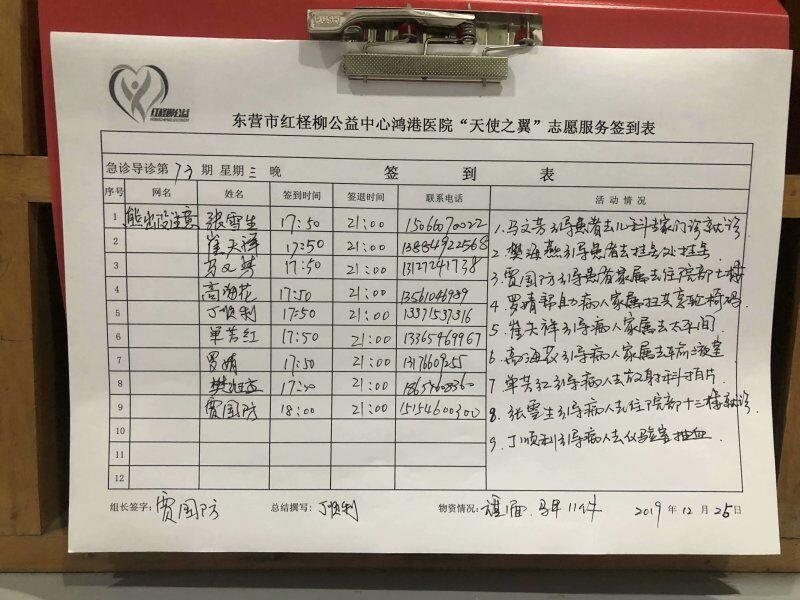 PUSH
红柽柳公益
东营市红柽柳公益中心鸿港医院“天使之翼”志愿服务签到表
急诊导诊第 73 期 星期 三 晚 签到表
序号 网名 姓名 签到时间 签退时间 联系电话 活动情况
1 熊出没注意 张雪生 17:50 21:00 15066070022
2 崔天祥 17:50 21:00 13884922568
3 马文芳 17:50 21:00 13127241738
4 高海花 17:50 21:00 13561046989
5 丁顺利 17:50 21:00 13371537316
6 单芳红 17:50 21:00 13365469967
7 罗婧 17:50 21:00 13176609255
8 樊海燕 21:00
9 贾国防 18:00 21:00 15154600300
10
11
12
1. 马文芳引导患者去儿科专家门诊就诊
2. 樊海燕引导患者去挂号处挂号
3. 贾国防引导患者家属去住院部七楼
4. 罗婧帮助病人家属扫共享轮椅码
5. 崔天祥引导病人家属去卫生间
6. 高海花引导病人家属去输液室
7. 单芳红引导病人去放射科拍片
8. 张雪生引导病人去住院部十三楼就诊.
9. 丁顺利引导病人去化验室抽血
组长签字: 贾国防 总结撰写: 丁顺利 物资情况: 马甲11件 2019 年 12 月 25 日